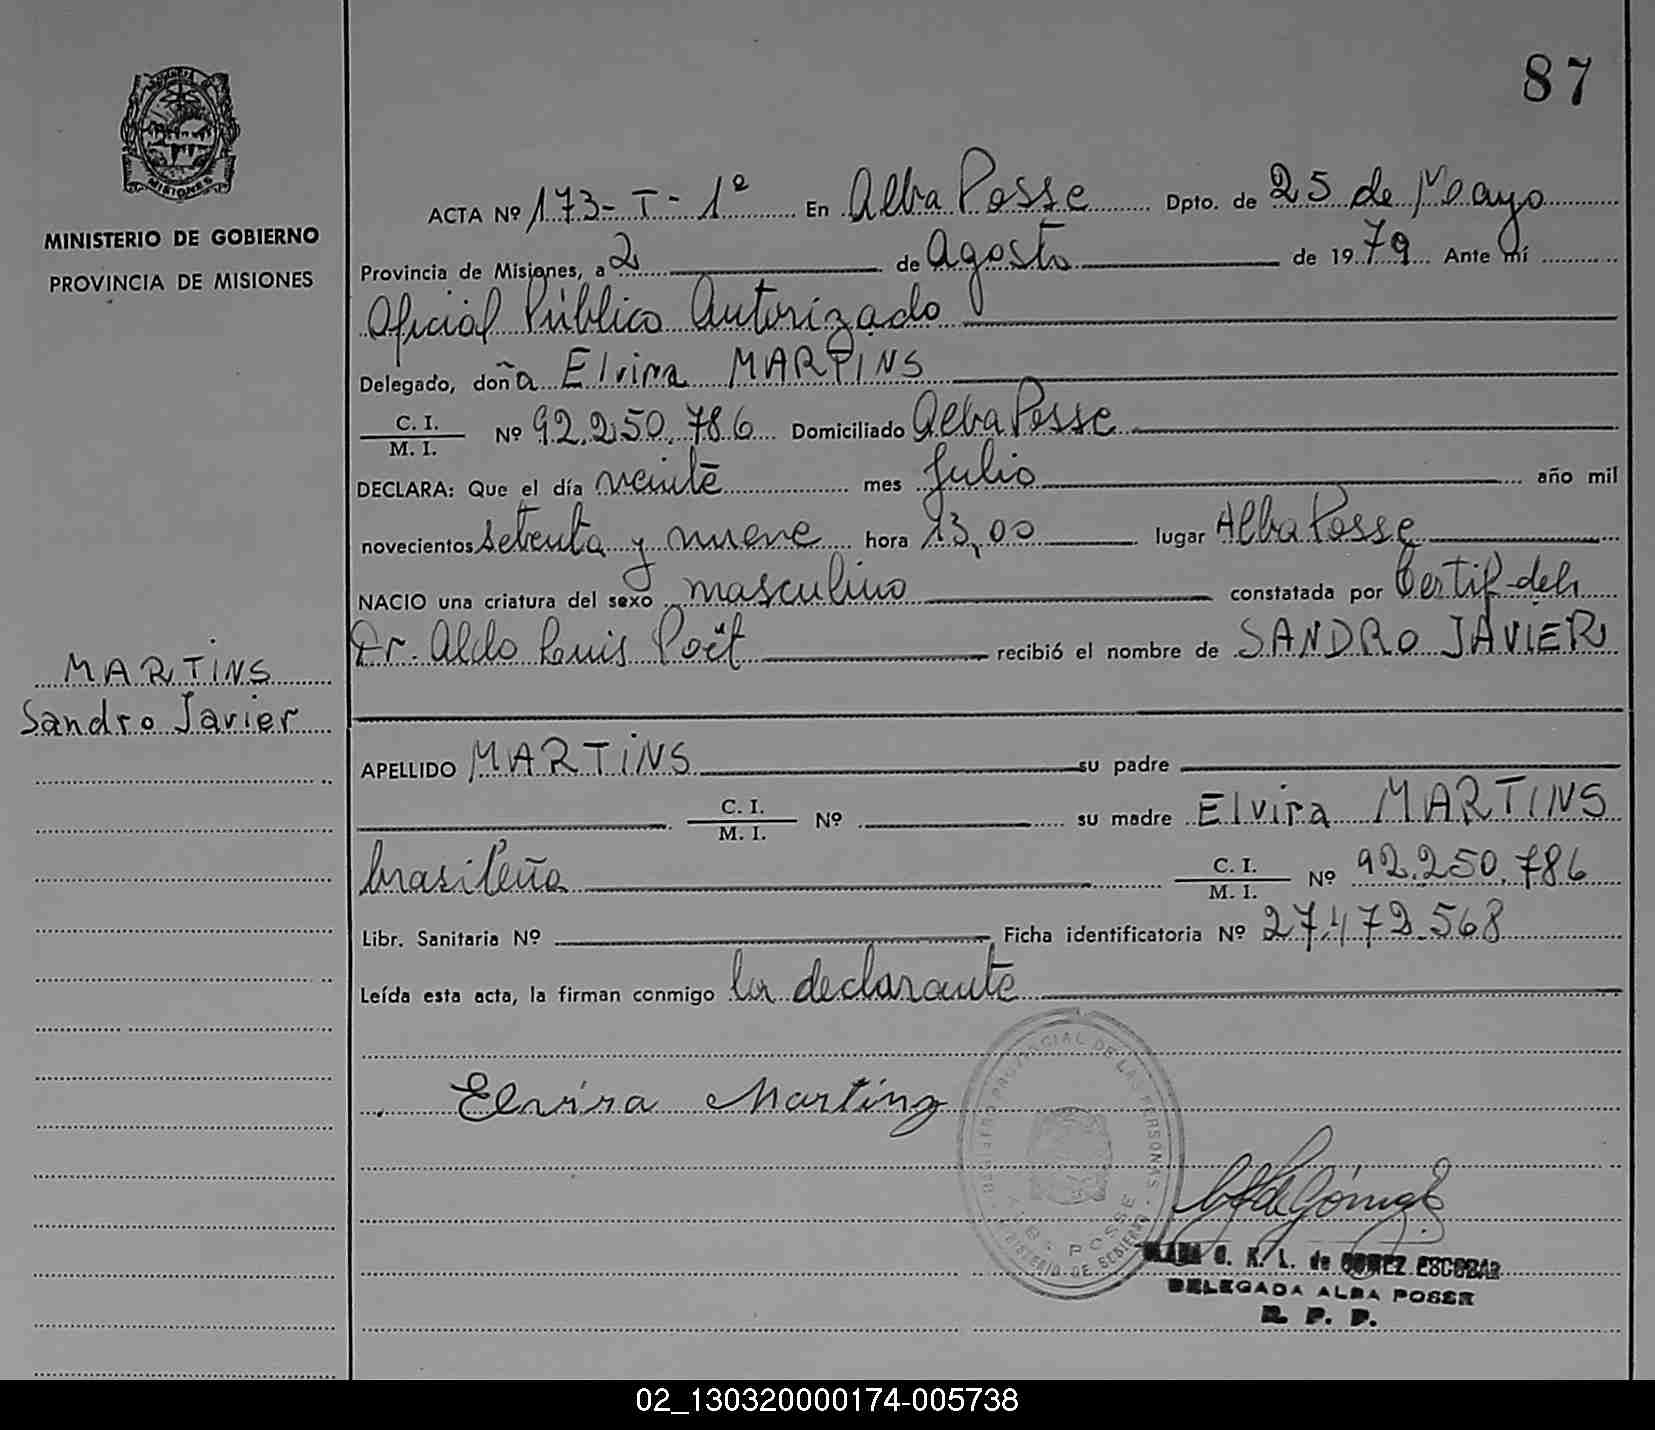 87
MINISTERIO DE GOBIERNO
PROVINCIA DE MISIONES
MISIONES
ACTA Nº 173-T-1º En Alba Posse Dpto. de 25 de Mayo
Provincia de Misiones, a 2 de Agosto de 1979 Ante mí
Oficial Público Autorizado
Delegado, doña Elvira MARTINS
C. I.
M. I. Nº 92.250.786 Domiciliado Alba Posse
DECLARA: Que el día veinte mes Julio año mil
novecientos setenta y nueve hora 13,00 lugar Alba Posse
NACIO una criatura del sexo masculino constatada por Certif. del
Dr. Aldo Luis Poët recibió el nombre de SANDRO JAVIER
MARTINS
Sandro Javier
APELLIDO MARTINS su padre
C. I.
M. I. Nº su madre Elvira MARTINS
brasileña C. I.
M. I. Nº 92.250.786
Libr. Sanitaria Nº Ficha identificatoria Nº 27.472.568
Leída esta acta, la firman conmigo la declarante
Elvira Martins
REGISTRO PROVINCIAL DE LAS PERSONAS
ALBA POSSE
MINISTERIO DE GOBIERNO
de Gómez
C. K. L. de GOMEZ ESCOBAR
DELEGADA ALBA POSSE
R. P. P.
02_130320000174-005738